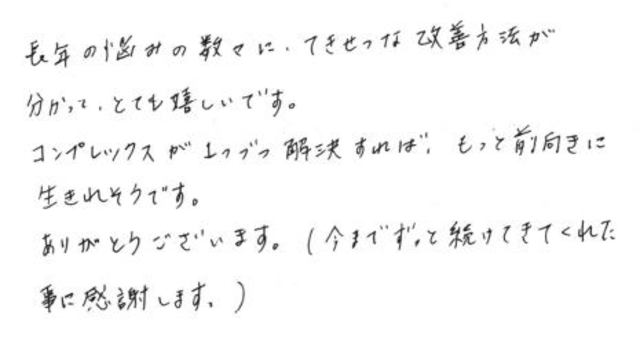 長年の悩みの数々に、てきせつな改善方法が
分かって、とても嬉しいです。
コンプレックスが1つづつ解決すれば、もっと前向きに
生きれそうです。
ありがとうございます。(今までずっと続けてきてくれた
事に感謝します。)